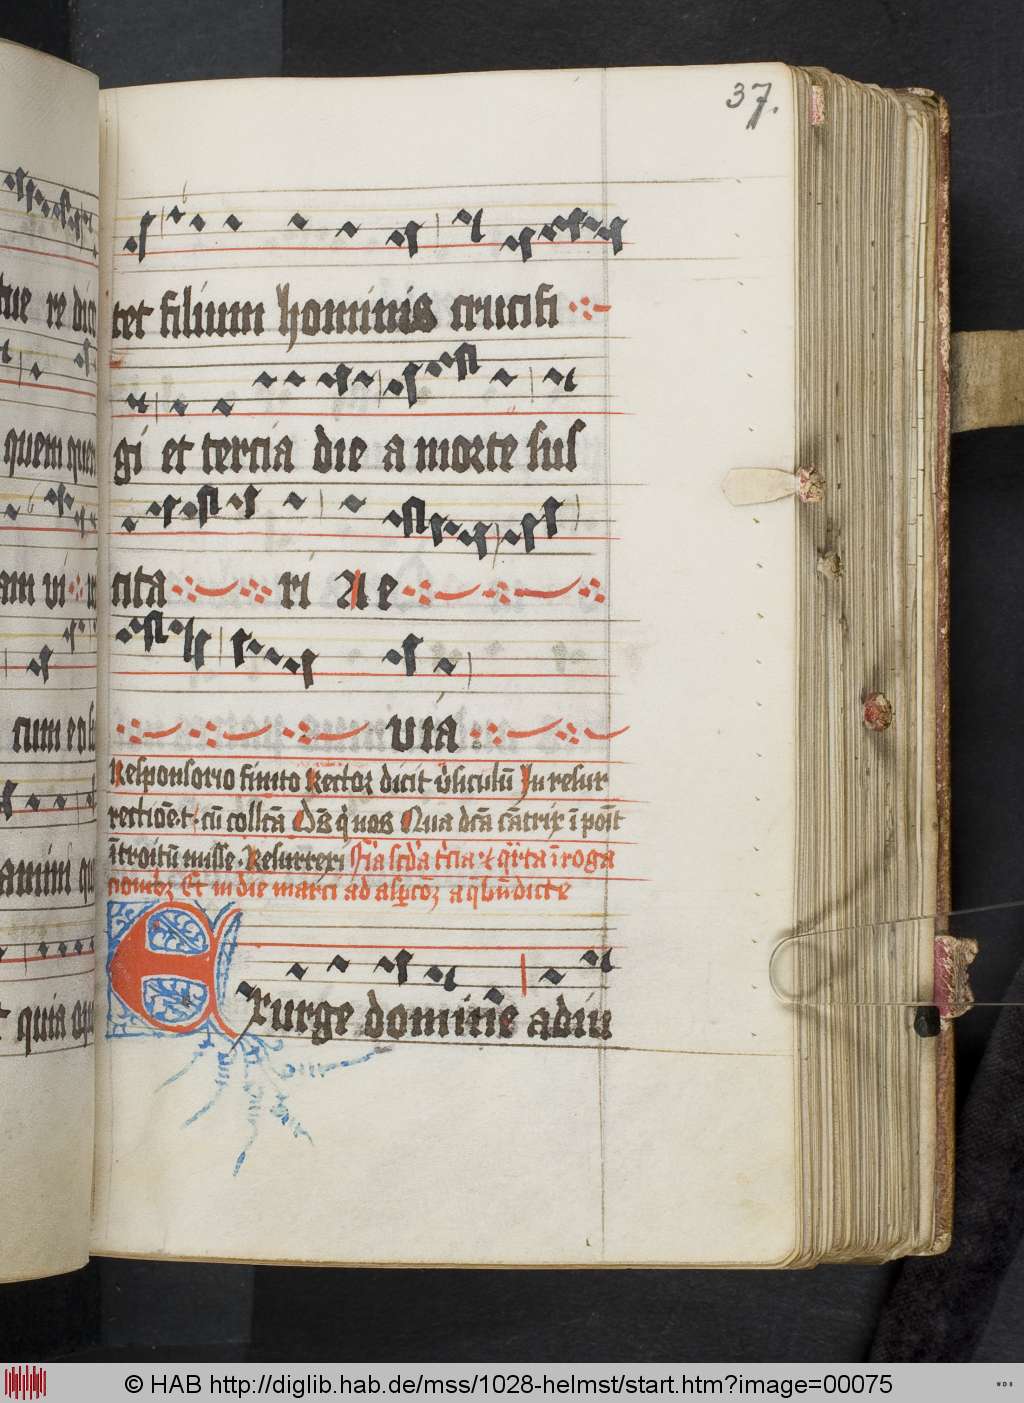 37.
tet filium hominis crucifi
gi et tercia die a morte sus
cita ri Ae
via
Responsorio finito Rector dicit v̄siculū In resur
rectiōe·t· cū collcā Ds̄ q̇ nos Qua dc̄a cātrix ī poīt
ītroitū misse· Resurrexi Fīa scd̄a t̄cia ⁊ q̄rta ī roga
cionibꝫ Et in die marci ad asp̄cōꝫ aq̄ bn̄dicte
Exurge dominē adiu
tue re dici
quem quer
am vi
cum eo
amini qu
t quia
© HAB http://diglib.hab.de/mss/1028-helmst/start.htm?image=00075